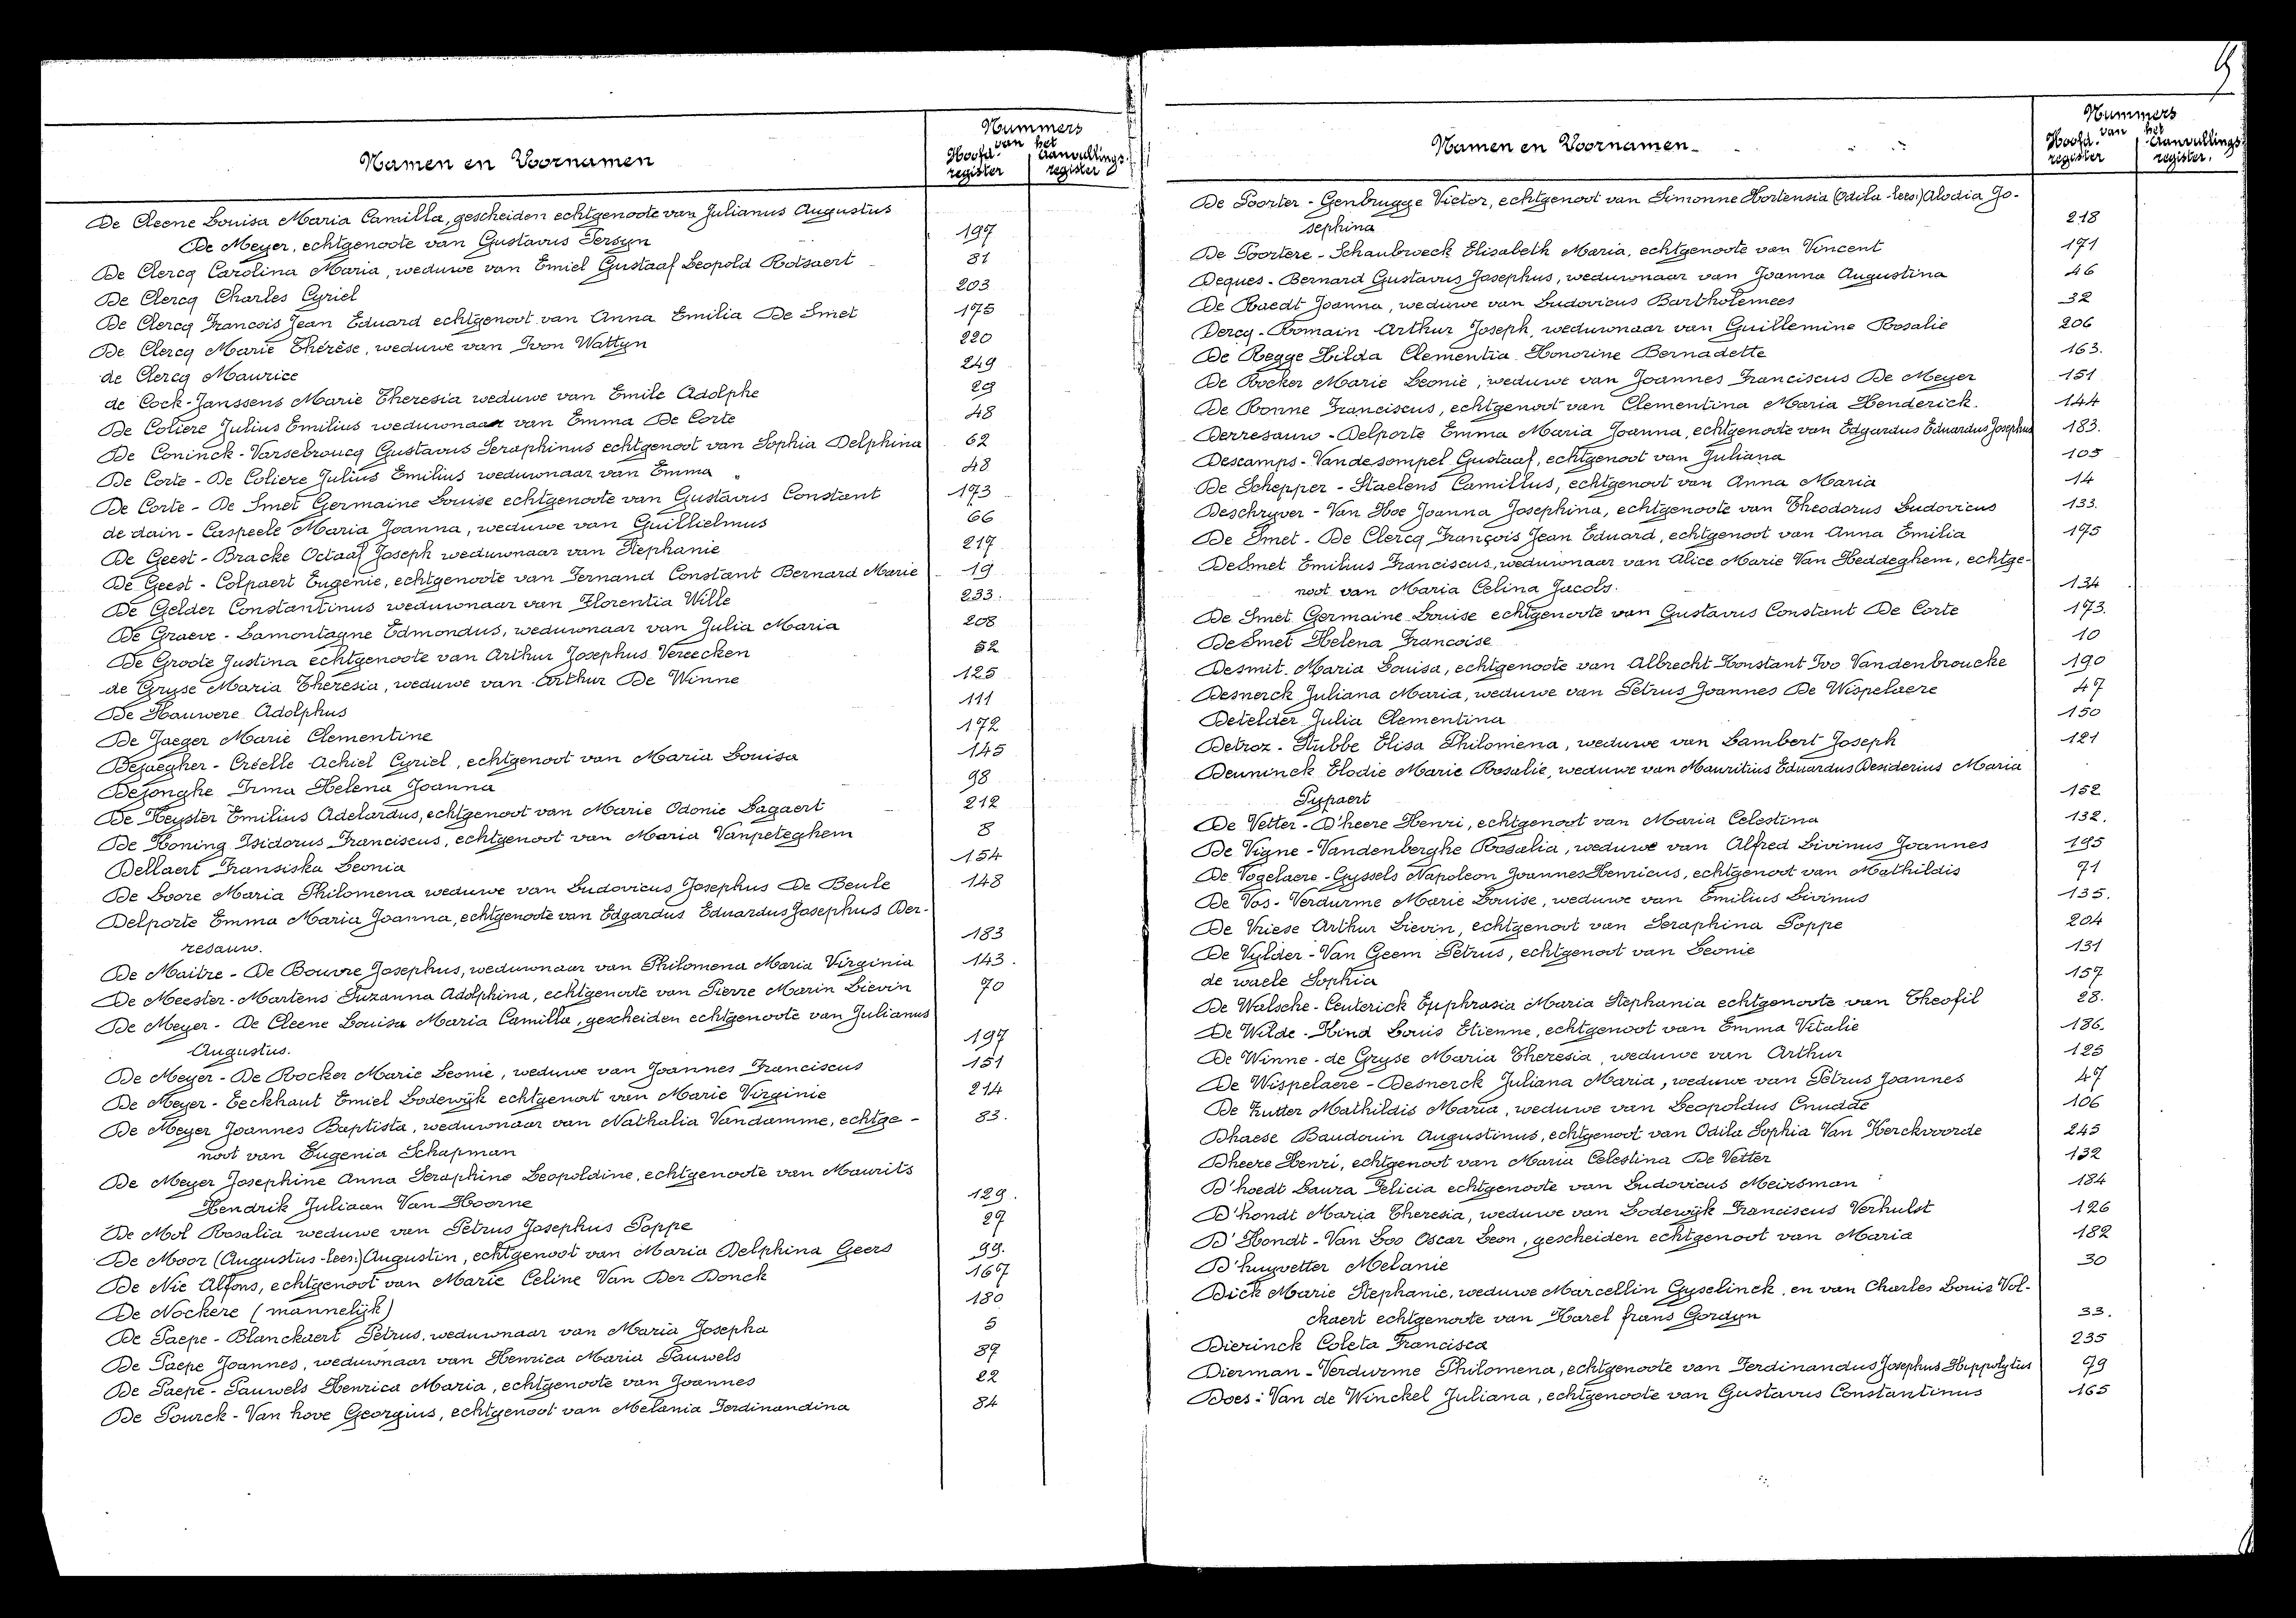 Namen en Voornamen
Nummers
van het
Hoofd- Aanvullings-
register register
De Cleene Louisa Maria Camilla, gescheiden echtgenoote van Julianus Augustus
De Meyer, echtgenoote van Gustavus Persyn 197
De Clercq Carolina Maria, weduwe van Emiel Gustaaf Leopold Rotsaert 81
De Clercq Charles Cyriel 203
De Clercq Francois Jean Eduard echtgenoot van Anna Emilia De Smet 175
De Clercq Marie Thérèse, weduwe van Ivon Wattyn 220
de Clercq Maurice 249
de Cock-Janssens Marie Theresia weduwe van Emile Adolphe 29
De Coliere Julius Emilius weduwnaar van Emma De Corte 48
De Coninck-Varsebroucq Gustavus Seraphinus echtgenoot van Sophia Delphina 62
De Corte - De Coliere Julius Emilius weduwnaar van Emma 48
De Corte - De Smet Germaine Louise echtgenoote van Gustavus Constant 173
de dain - Caspeele Maria Joanna, weduwe van Guillielmus 66
De Geest - Bracke Octaaf Joseph weduwnaar van Stephanie 217
De Geest - Colpaert Eugenie, echtgenoote van Fernand Constant Bernard Marie 19
De Gelder Constantinus weduwnaar van Florentia Wille 233.
De Graeve - Lamontagne Edmondus, weduwnaar van Julia Maria 208
De Groote Justina echtgenoote van Arthur Josephus Vereecken 52
de Gryse Maria Theresia, weduwe van Arthur De Winne 125
De Hauwere Adolphus 111
De Jaeger Marie Clementine 172
Dejaegher - Créelle Achiel Cyriel, echtgenoot van Maria Louisa 145
Dejonghe Irma Helena Joanna 98
De Keyster Emilius Adelardus, echtgenoot van Marie Odonie Lagaert 212
De Koning Isidorus Franciscus, echtgenoot van Maria Vanpeteghem 8
Dellaert Fransiska Leonia 154
De Loore Maria Philomena weduwe van Ludovicus Josephus De Beule 148
Delporte Emma Maria Joanna, echtgenoote van Edgardus Eduardus Josephus Der-
resauw. 183
De Maitre - De Bouvre Josephus, weduwnaar van Philomena Maria Virginia 143.
De Meester - Martens Suzanna Adolphina, echtgenoote van Pierre Marin Lievin 70
De Meyer - De Cleene Louisa Maria Camilla, gescheiden echtgenoote van Julianus
Augustus. 197
De Meyer - De Rocker Marie Leonie, weduwe van Joannes Franciscus 151
De Meyer - Eeckhaut Emiel Lodewijk echtgenoot van Marie Virginie 214
De Meyer Joannes Baptista, weduwnaar van Nathalia Vandamme, echtge- 83.
noot van Eugenia Schapman
De Meyer Josephine Anna Seraphine Leopoldine, echtgenoote van Maurits
Hendrik Juliaan Van Hoorne 129.
De Mol Rosalia weduwe van Petrus Josephus Poppe 27
De Moor (Augustus-lees:) Augustin, echtgenoot van Maria Delphina Geers 99.
De Nie Alfons, echtgenoot van Marie Celine Van Der Donck 167
De Nockere (mannelijk) 180
De Paepe - Blanckaert Petrus, weduwnaar van Maria Josepha 5
De Paepe Joannes, weduwnaar van Henrica Maria Pauwels 89
De Paepe - Pauwels Henrica Maria, echtgenoote van Joannes 22
De Pourck - Van hove Georgius, echtgenoot van Melania Ferdinandina 84
Namen en Voornamen
Nummers
van het
Hoofd- Aanvullings-
register register.
De Poorter - Genbrugge Victor, echtgenoot van Simonne Hortensia (Odila-lees:) Alodia Jo-
sephina 218
De Poortere - Schaubroeck Elisabeth Maria, echtgenoote van Vincent 171
Deques - Bernard Gustavus Josephus, weduwnaar van Joanna Augustina 46
De Raedt Joanna, weduwe van Ludovicus Bartholemees 32
Dercq - Romain Arthur Joseph, weduwnaar van Guillemine Rosalie 206
De Regge Hilda Clementia Honorine Bernadette 163.
De Rocker Marie Leonie, weduwe van Joannes Franciscus De Meyer 151
De Ronne Franciscus, echtgenoot van Clementina Maria Henderick. 144
Derresauw - Delporte Emma Maria Joanna, echtgenoote van Edgardus Eduardus Josephus 183.
Descamps - Vandesompel Gustaaf, echtgenoot van Juliana 105
De Schepper - Staelens Camillus, echtgenoot van Anna Maria 14
Deschryver - Van Hoe Joanna Josephina, echtgenoote van Theodorus Ludovicus 133.
De Smet - De Clercq François Jean Eduard, echtgenoot van Anna Emilia 175
De Smet Emilius Franciscus, weduwnaar van Alice Marie Van Heddeghem, echtge-
noot van Maria Celina Jacobs. 134
De Smet Germaine Louise echtgenoote van Gustavus Constant De Corte 173.
De Smet Helena Francoise 10
Desmit Maria Louisa, echtgenoote van Albrecht Konstant Ivo Vandenbroucke 190
Desnerck Juliana Maria, weduwe van Petrus Joannes De Wispelaere 47
Detelder Julia Clementina 150
Detroz - Stubbe Elisa Philomena, weduwe van Lambert Joseph 121
Deuninck Elodie Marie Rosalie, weduwe van Mauritius Eduardus Desiderius Maria
Pypaert 152
De Vetter - D'heere Henri, echtgenoot van Maria Celestina 132.
De Vigne - Vandenberghe Rosalia, weduwe van Alfred Livinus Joannes 195
De Vogelaere - Gyssels Napoleon Joannes Henricus, echtgenoot van Mathildis 71
De Vos - Verdurme Marie Louise, weduwe van Emilius Livinus 135.
De Vriese Arthur Lievin, echtgenoot van Seraphina Poppe 204
De Vylder - Van Geem Petrus, echtgenoot van Leonie 131
de waele Sophia 157
De Walsche - Ceuterick Euphrasia Maria Stephania echtgenoote van Theofil 28.
De Wilde - Kind Louis Etienne, echtgenoot van Emma Vitalie 186.
De Winne - de Gryse Maria Theresia, weduwe van Arthur 125
De Wispelaere - Desnerck Juliana Maria, weduwe van Petrus Joannes 47
De Zutter Mathildis Maria, weduwe van Leopoldus Cnudde 106
Dhaese Baudouin Augustinus, echtgenoot van Odila Sophia Van Kerckvoorde 245
Dheere Henri, echtgenoot van Maria Celestina De Vetter 132
D'hoedt Laura Felicia echtgenoote van Ludovicus Meirsman 184
D'hondt Maria Theresia, weduwe van Lodewijk Franciscus Verhulst 126
D'Hondt - Van Loo Oscar Leon, gescheiden echtgenoot van Maria 182
D'huyvetter Melanie 30
Dick Marie Stephanie, weduwe Marcellin Gyselinck, en van Charles Louis Vol-
ckaert echtgenoote van Karel frans Gordyn 33.
Dierinck Coleta Francisca 235
Dierman - Verdurme Philomena, echtgenoote van Ferdinandus Josephus Hippolytus 79
Does - Van de Winckel Juliana, echtgenoote van Gustavus Constantinus 165